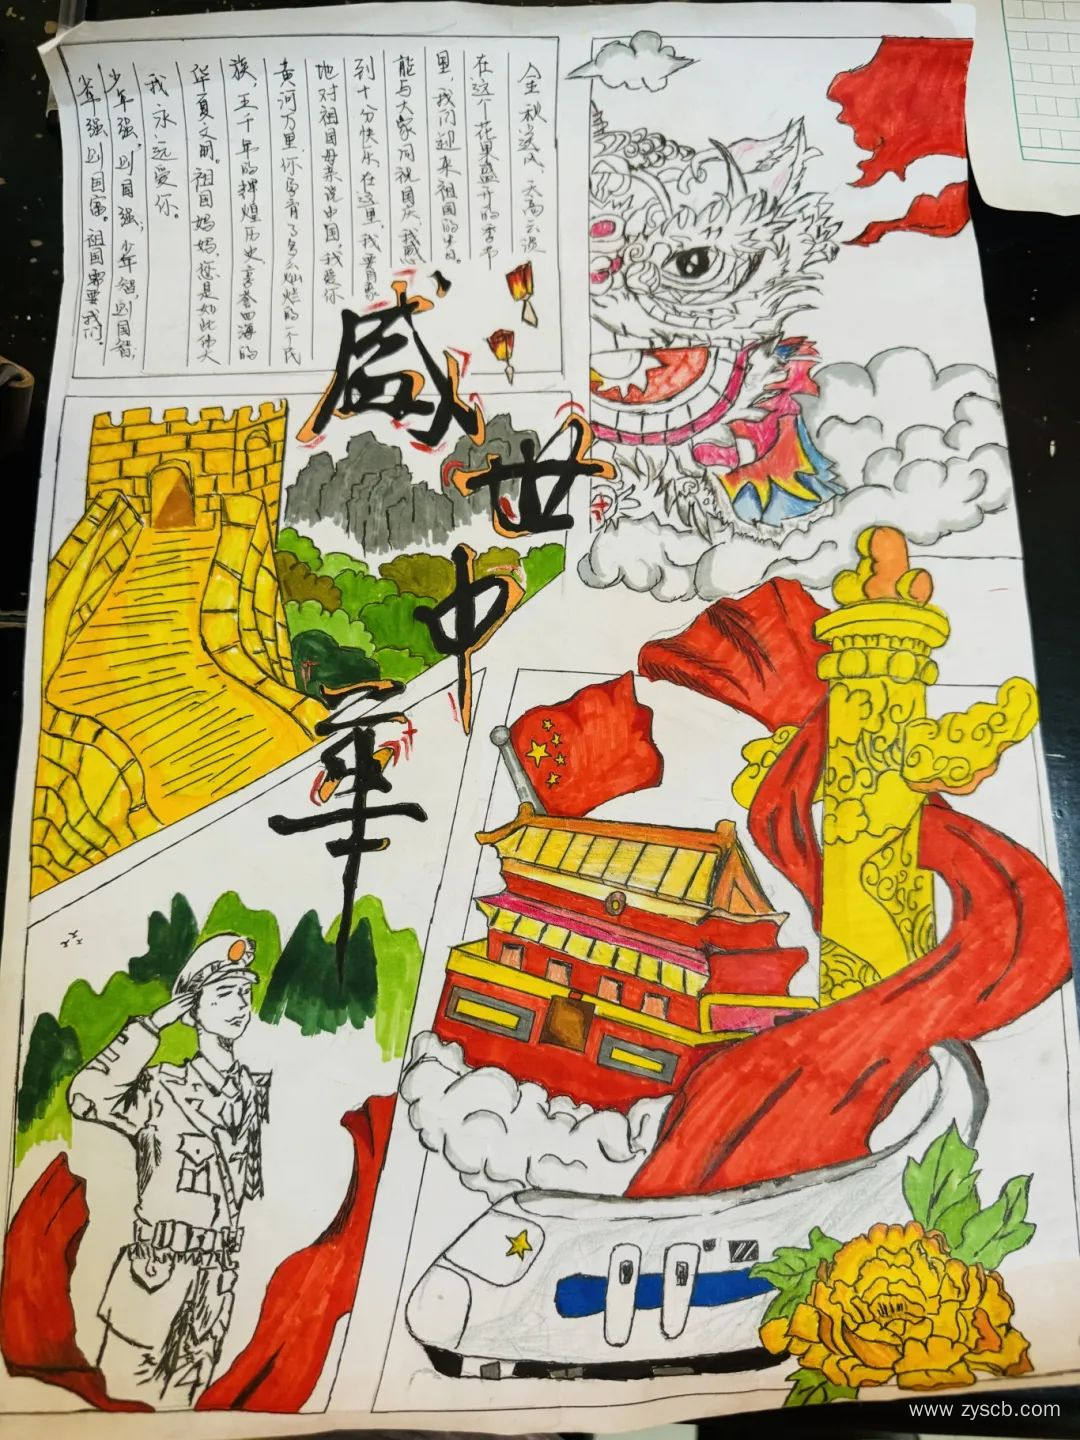 金秋送爽、天高云淡
在这个花果盛开的季节
里，我们迎来祖国的生日。
能与大家同祝国庆，我感
到十分快乐，在这里，我要自豪
地对祖国母亲说中国，我爱你
黄河万里，你孕育了多么灿烂的一个民
族，五千年的辉煌历史享誉四海的
华夏文明。祖国妈妈，您是如此伟大
我永远爱你。
少年强，则国强；少年智，则国智；
少年强则国富。祖国需要我们。
盛世中华
www.zyscb.com